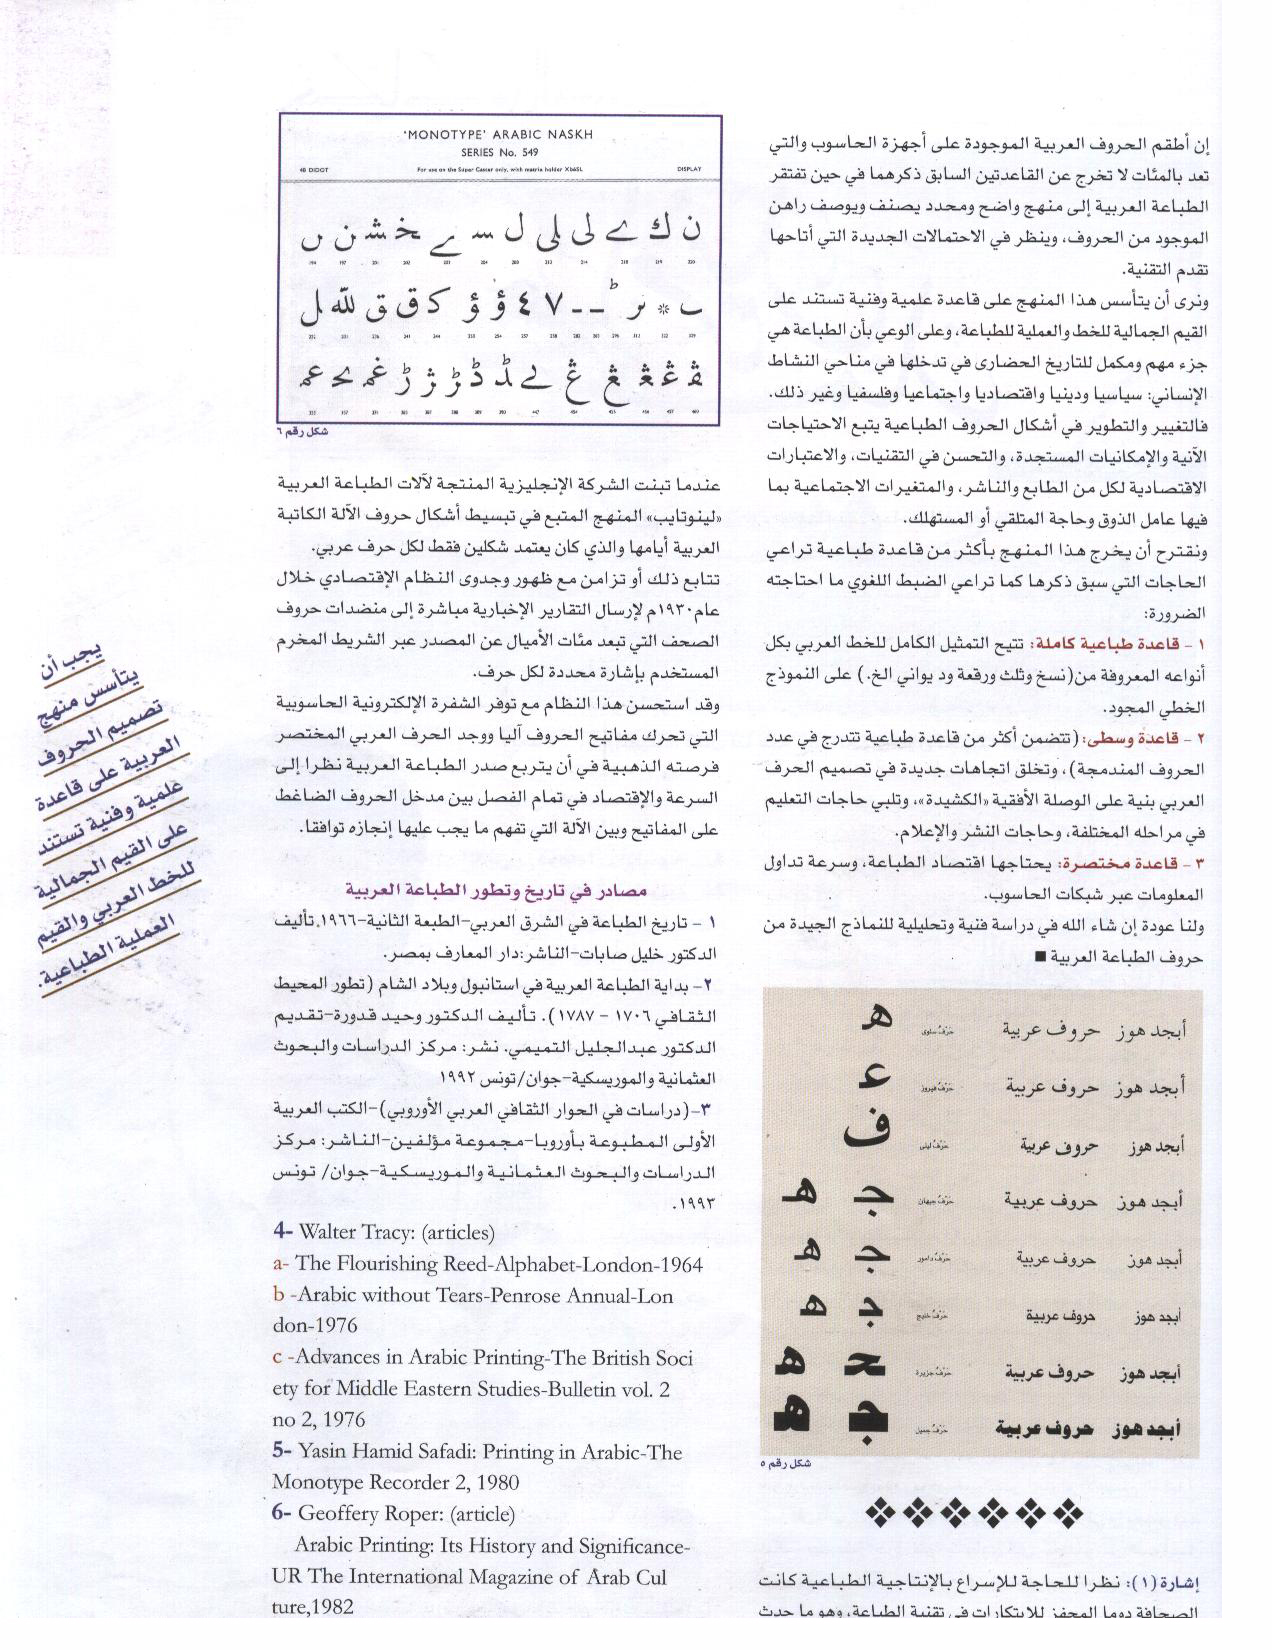 إن أطقم الحروف العربية الموجودة على أجهزة الحاسوب والتي
تعد بالمئات لا تخرج عن القاعدتين السابق ذكرهما في حين تفتقر
الطباعة العربية إلى منهج واضح ومحدد يصنف ويوصف راهن
الموجود من الحروف، وينظر في الاحتمالات الجديدة التي أتاحها
تقدم التقنية.
ونرى أن يتأسس هذا المنهج على قاعدة علمية وفنية تستند على
القيم الجمالية للخط والعملية للطباعة، وعلى الوعي بأن الطباعة هي
جزء مهم ومكمل للتاريخ الحضارى في تدخلها في مناحي النشاط
الإنساني: سياسيا ودينيا واقتصاديا واجتماعيا وفلسفيا وغير ذلك.
فالتغيير والتطوير في أشكال الحروف الطباعية يتبع الاحتياجات
الآنية والإمكانيات المستجدة، والتحسن في التقنيات، والاعتبارات
الاقتصادية لكل من الطابع والناشر، والمتغيرات الاجتماعية بما
فيها عامل الذوق وحاجة المتلقي أو المستهلك.
ونقترح أن يخرج هذا المنهج بأكثر من قاعدة طباعية تراعي
الحاجات التي سبق ذكرها كما تراعي الضبط اللغوي ما احتاجته
الضرورة:
١ - قاعدة طباعية كاملة: تتيح التمثيل الكامل للخط العربي بكل
أنواعه المعروفة من(نسخ وثلث ورقعة ود يواني الخ.) على النموذج
الخطي المجود.
٢ - قاعدة وسطى: (تتضمن أكثر من قاعدة طباعية تتدرج في عدد
الحروف المندمجة)، وتخلق اتجاهات جديدة في تصميم الحرف
العربي بنية على الوصلة الأفقية «الكشيدة»، وتلبي حاجات التعليم
في مراحله المختلفة، وحاجات النشر والإعلام.
٣ - قاعدة مختصرة: يحتاجها اقتصاد الطباعة، وسرعة تداول
المعلومات عبر شبكات الحاسوب.
ولنا عودة إن شاء الله في دراسة فنية وتحليلية للنماذج الجيدة من
حروف الطباعة العربية ■
أبجد هوز حروف عربية حَرْف سلوى ه
أبجد هوز حروف عربية حَرْف فيروز ع
أبجد هوز حروف عربية حَرْف ليلى ف
أبجد هوز حروف عربية حَرْف جيهان جـ هـ
أبجد هوز حروف عربية حَرْف دامور جـ هـ
أبجد هوز حروف عربية حَرْف خليج جـ هـ
أبجد هوز حروف عربية حَرْف جزيرة حـ هـ
أبجد هوز حروف عربية حَرْف جميل جـ هـ
شكل رقم ٥
إشارة (١): نظرا للحاجة للإسراع بالإنتاجية الطباعية كانت
الصحافة دوما المحفز للابتكارات في تقنية الطباعة، وهو ما حدث
'MONOTYPE' ARABIC NASKH
SERIES No. 549
48 DIDOT For use on the Super Caster only, with matrix holder Xb6SL DISPLAY
شكل رقم ٦
عندما تبنت الشركة الإنجليزية المنتجة لآلات الطباعة العربية
«لينوتايب» المنهج المتبع في تبسيط أشكال حروف الآلة الكاتبة
العربية أيامها والذي كان يعتمد شكلين فقط لكل حرف عربي.
تتابع ذلك أو تزامن مع ظهور وجدوى النظام الإقتصادي خلال
عام١٩٣٠م لإرسال التقارير الإخبارية مباشرة إلى منضدات حروف
الصحف التي تبعد مئات الأميال عن المصدر عبر الشريط المخرم
المستخدم بإشارة محددة لكل حرف.
وقد استحسن هذا النظام مع توفر الشفرة الإلكترونية الحاسوبية
التي تحرك مفاتيح الحروف آليا ووجد الحرف العربي المختصر
فرصته الذهبية في أن يتربع صدر الطباعة العربية نظرا إلى
السرعة والإقتصاد في تمام الفصل بين مدخل الحروف الضاغط
على المفاتيح وبين الآلة التي تفهم ما يجب عليها إنجازه توافقا.
مصادر في تاريخ وتطور الطباعة العربية
١ - تاريخ الطباعة في الشرق العربي-الطبعة الثانية-١٩٦٦،تأليف
الدكتور خليل صابات-الناشر:دار المعارف بمصر.
٢- بداية الطباعة العربية في استانبول وبلاد الشام (تطور المحيط
الثقافي ١٧٠٦ - ١٧٨٧). تأليف الدكتور وحيد قدورة-تقديم
الدكتور عبدالجليل التميمي. نشر: مركز الدراسات والبحوث
العثمانية والموريسكية-جوان/تونس ١٩٩٢
٣-(دراسات في الحوار الثقافي العربي الأوروبي)-الكتب العربية
الأولى المطبوعة بأوروبا-مجموعة مؤلفين-الناشر: مركز
الدراسات والبحوث العثمانية والموريسكية-جوان/ تونس
١٩٩٣.
4- Walter Tracy: (articles)
a- The Flourishing Reed-Alphabet-London-1964
b -Arabic without Tears-Penrose Annual-Lon
don-1976
c -Advances in Arabic Printing-The British Soci
ety for Middle Eastern Studies-Bulletin vol. 2
no 2, 1976
5- Yasin Hamid Safadi: Printing in Arabic-The
Monotype Recorder 2, 1980
6- Geoffery Roper: (article)
Arabic Printing: Its History and Significance-
UR The International Magazine of Arab Cul
ture,1982
يجب أن
يتأسس منهج
تصميم الحروف
العربية على قاعدة
علمية وفنية تستند
على القيم الجمالية
للخط العربي والقيم
العملية الطباعية.